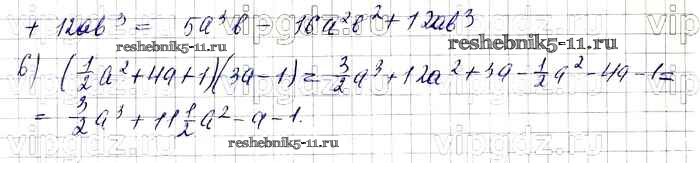 + 12ab³ = 5a³b - 16a²b² + 12ab³
reshebnik5-11.ru
reshebnik5-11.ru
б) (1/2 a² + 4a + 1)(3a - 1) = 3/2 a³ + 12a² + 3a - 1/2 a² - 4a - 1 =
= 3/2 a³ + 11 1/2 a² - a - 1.
reshebnik5-11.ru
vipgdz.ru